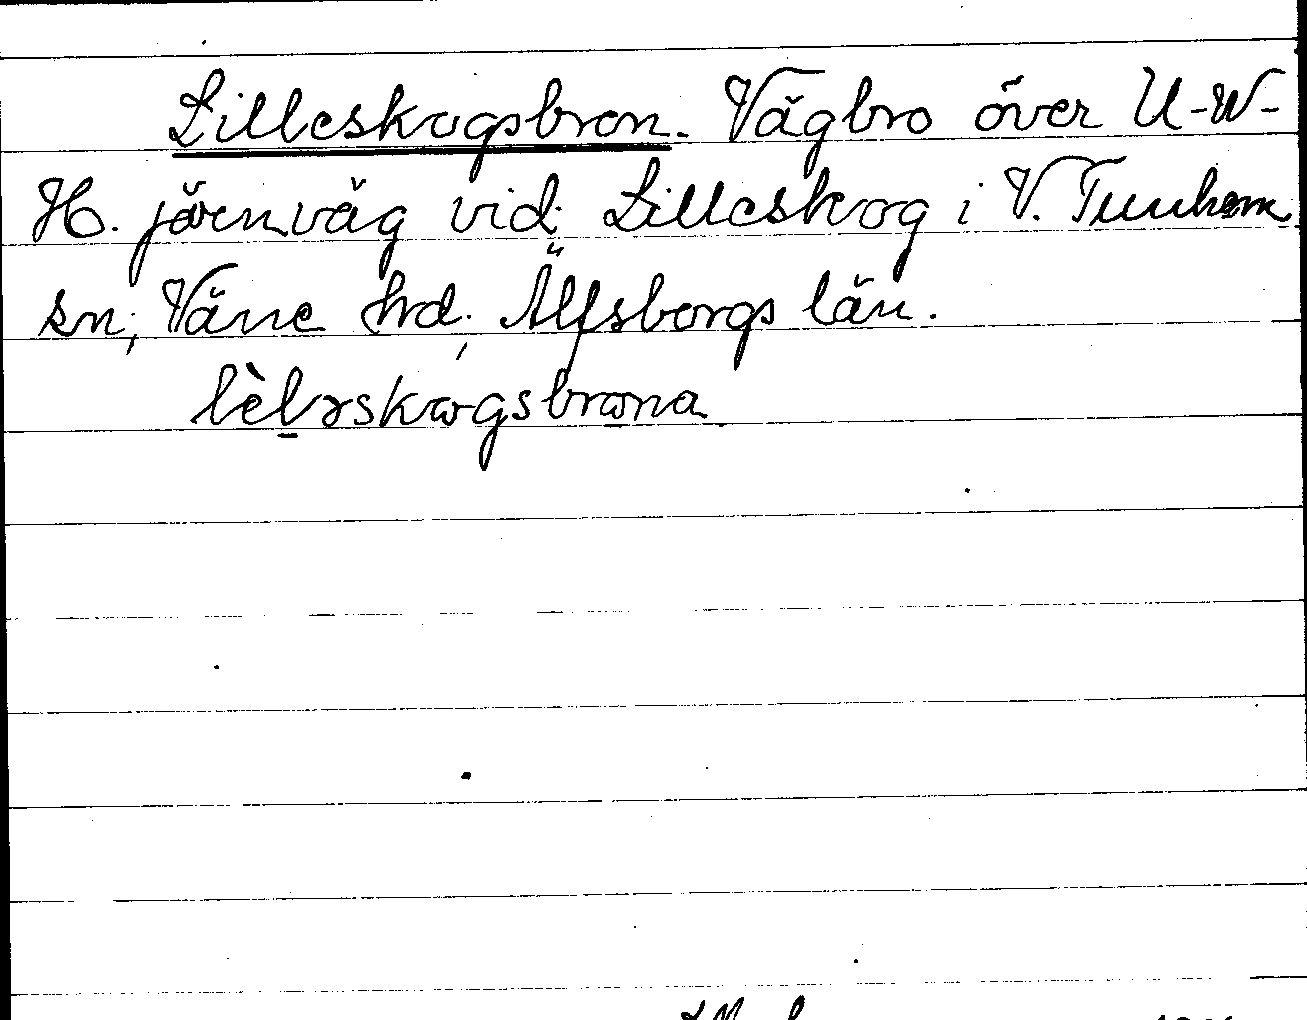 Lilleskogsbron. Vägbro över U-W-
H. järnväg vid Lilleskog i V. Tunhem
sn, Väne hd, Älfsborgs län.
lèl̠ɘskωgsbrωna